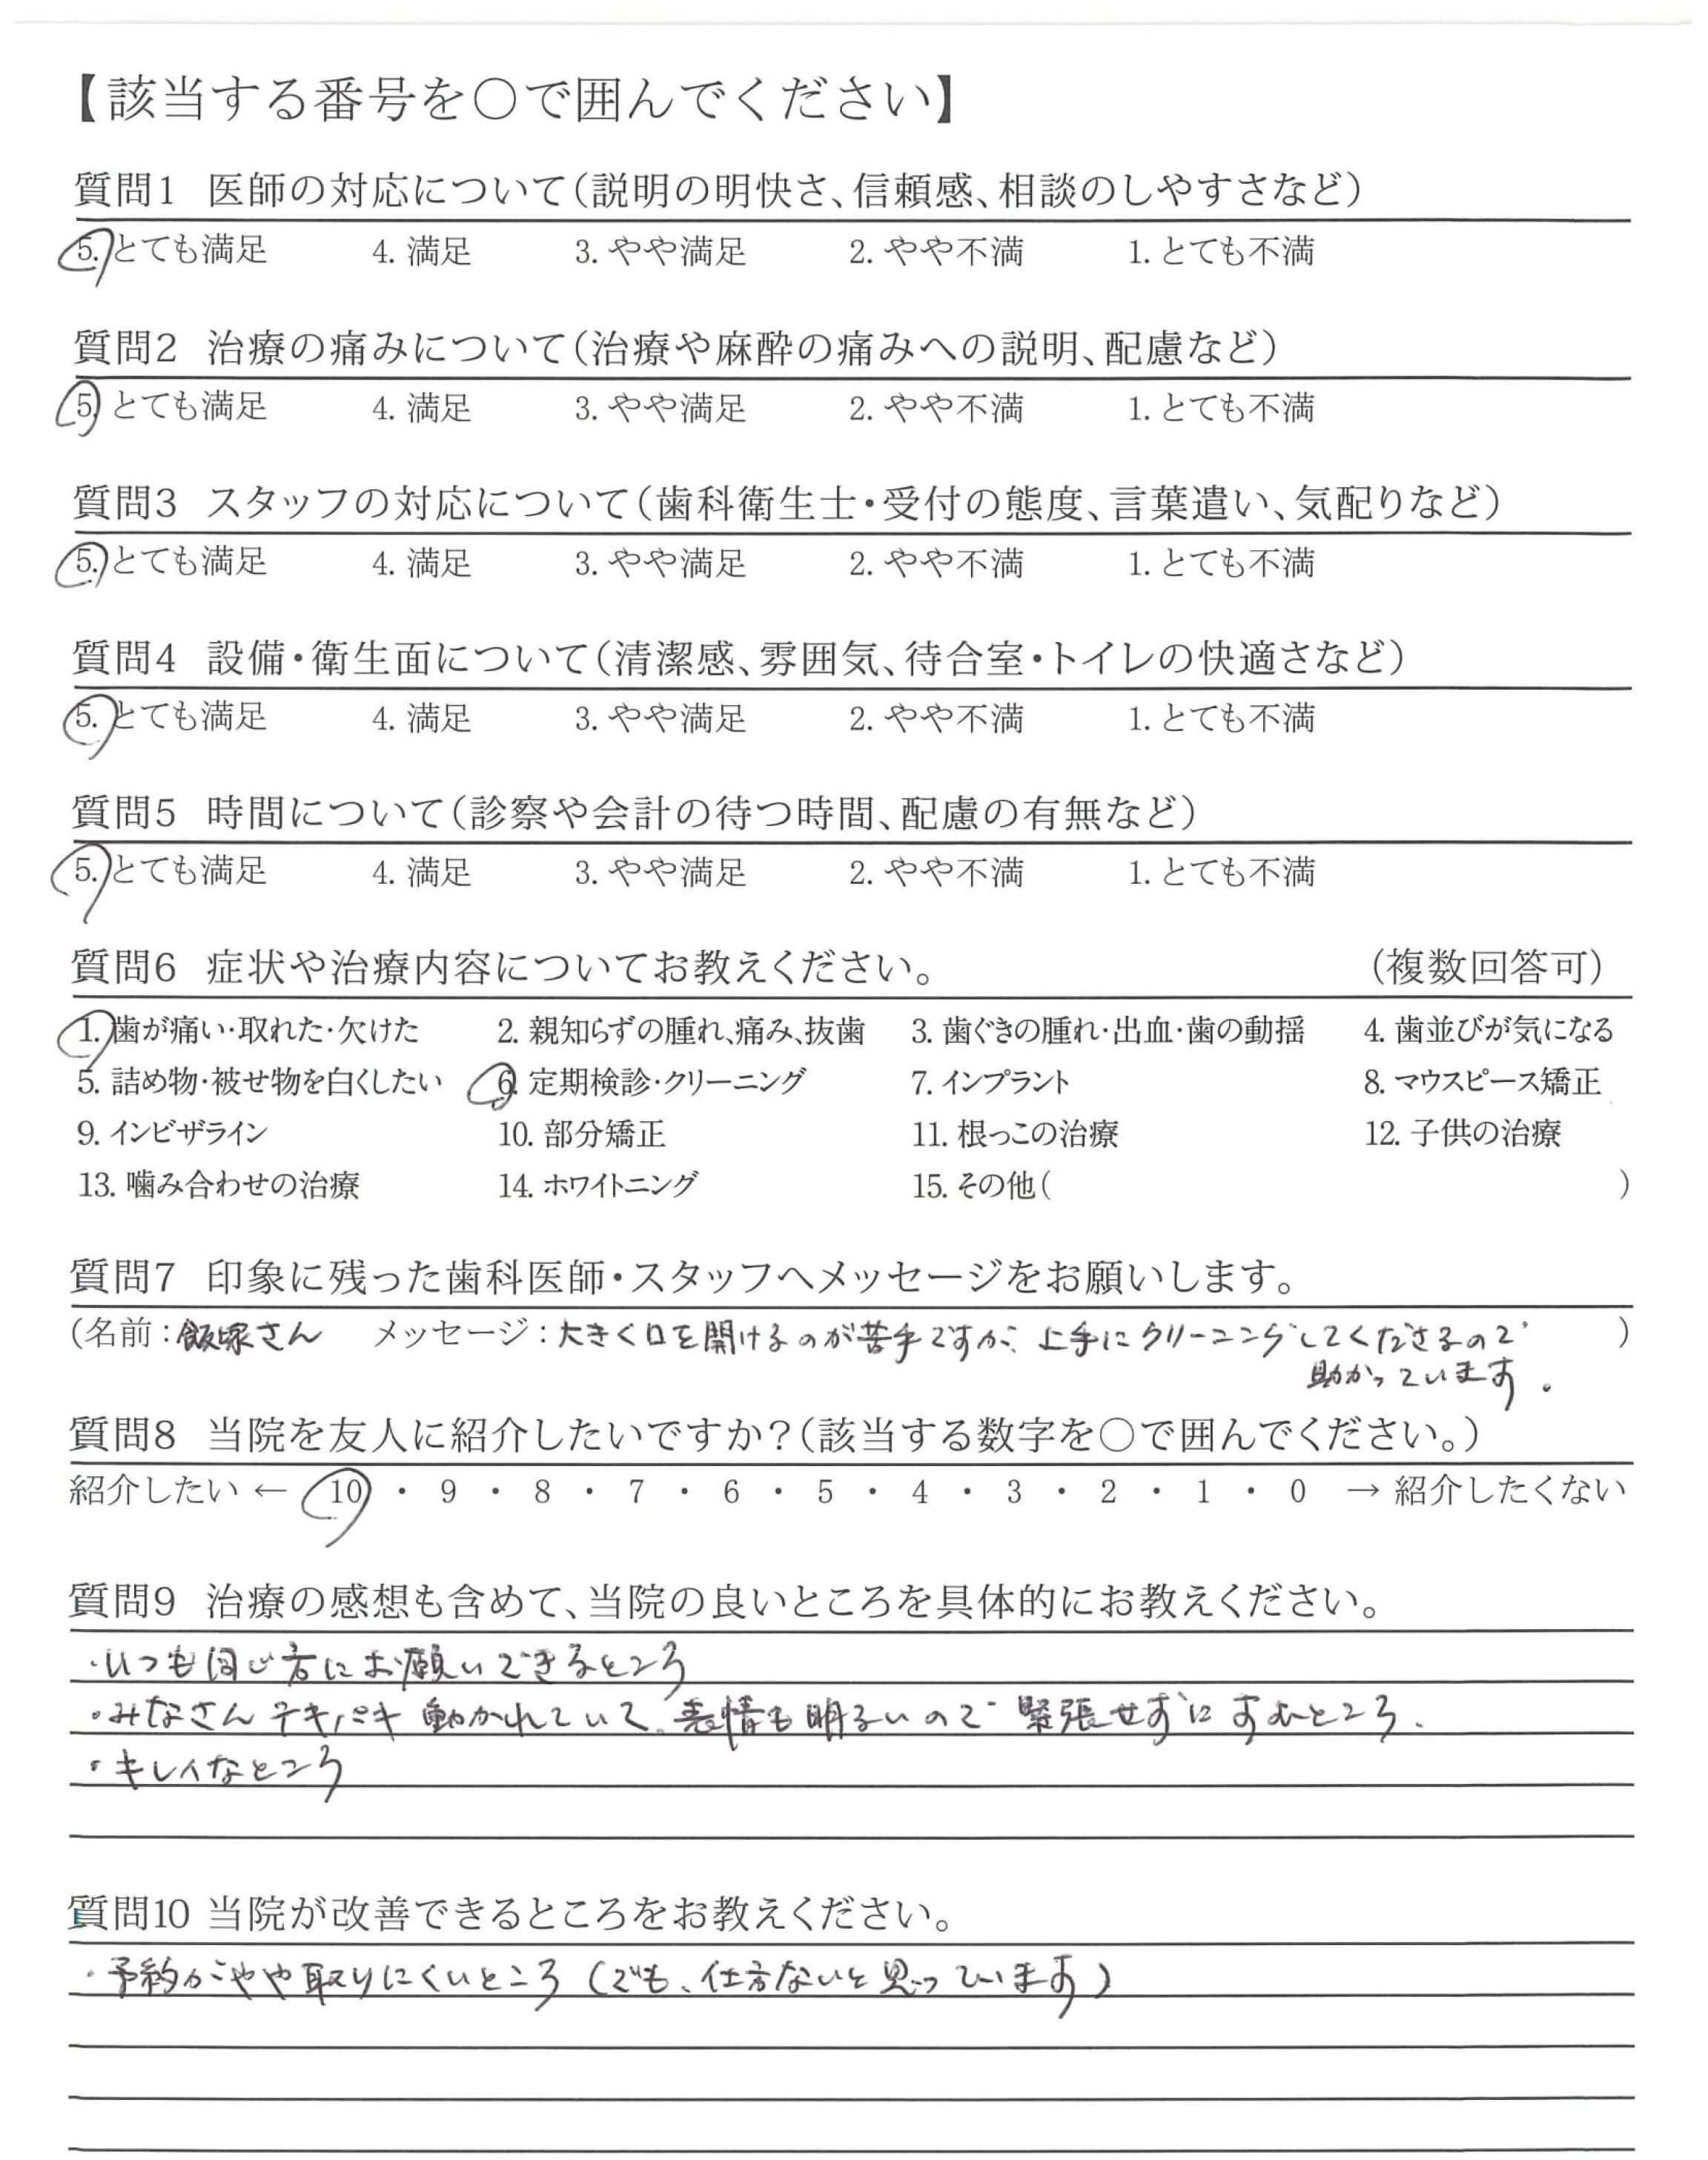 【該当する番号を○で囲んでください】
質問1 医師の対応について(説明の明快さ、信頼感、相談のしやすさなど)
5. とても満足 4. 満足 3. やや満足 2. やや不満 1. とても不満
質問2 治療の痛みについて(治療や麻酔の痛みへの説明、配慮など)
5. とても満足 4. 満足 3. やや満足 2. やや不満 1. とても不満
質問3 スタッフの対応について(歯科衛生士・受付の態度、言葉遣い、気配りなど)
5. とても満足 4. 満足 3. やや満足 2. やや不満 1. とても不満
質問4 設備・衛生面について(清潔感、雰囲気、待合室・トイレの快適さなど)
5. とても満足 4. 満足 3. やや満足 2. やや不満 1. とても不満
質問5 時間について(診察や会計の待つ時間、配慮の有無など)
5. とても満足 4. 満足 3. やや満足 2. やや不満 1. とても不満
質問6 症状や治療内容についてお教えください。 (複数回答可)
1. 歯が痛い・取れた・欠けた 2. 親知らずの腫れ、痛み、抜歯 3. 歯ぐきの腫れ・出血・歯の動揺 4. 歯並びが気になる
5. 詰め物・被せ物を白くしたい 6. 定期検診・クリーニング 7. インプラント 8. マウスピース矯正
9. インビザライン 10. 部分矯正 11. 根っこの治療 12. 子供の治療
13. 噛み合わせの治療 14. ホワイトニング 15. その他( )
質問7 印象に残った歯科医師・スタッフへメッセージをお願いします。
(名前：飯塚さん メッセージ：大きく口を開けるのが苦手ですが、上手にクリーニングしてくださるので )
助かっています。
質問8 当院を友人に紹介したいですか？(該当する数字を○で囲んでください。)
紹介したい ← 10 ・ 9 ・ 8 ・ 7 ・ 6 ・ 5 ・ 4 ・ 3 ・ 2 ・ 1 ・ 0 → 紹介したくない
質問9 治療の感想も含めて、当院の良いところを具体的にお教えください。
・いつも同じ方にお願いできるところ
・みなさんテキパキ動かれていて、表情も明るいので緊張せずにすむところ.
・キレイなところ
質問10 当院が改善できるところをお教えください。
・予約がやや取りにくいところ(でも、仕方ないと思っています)